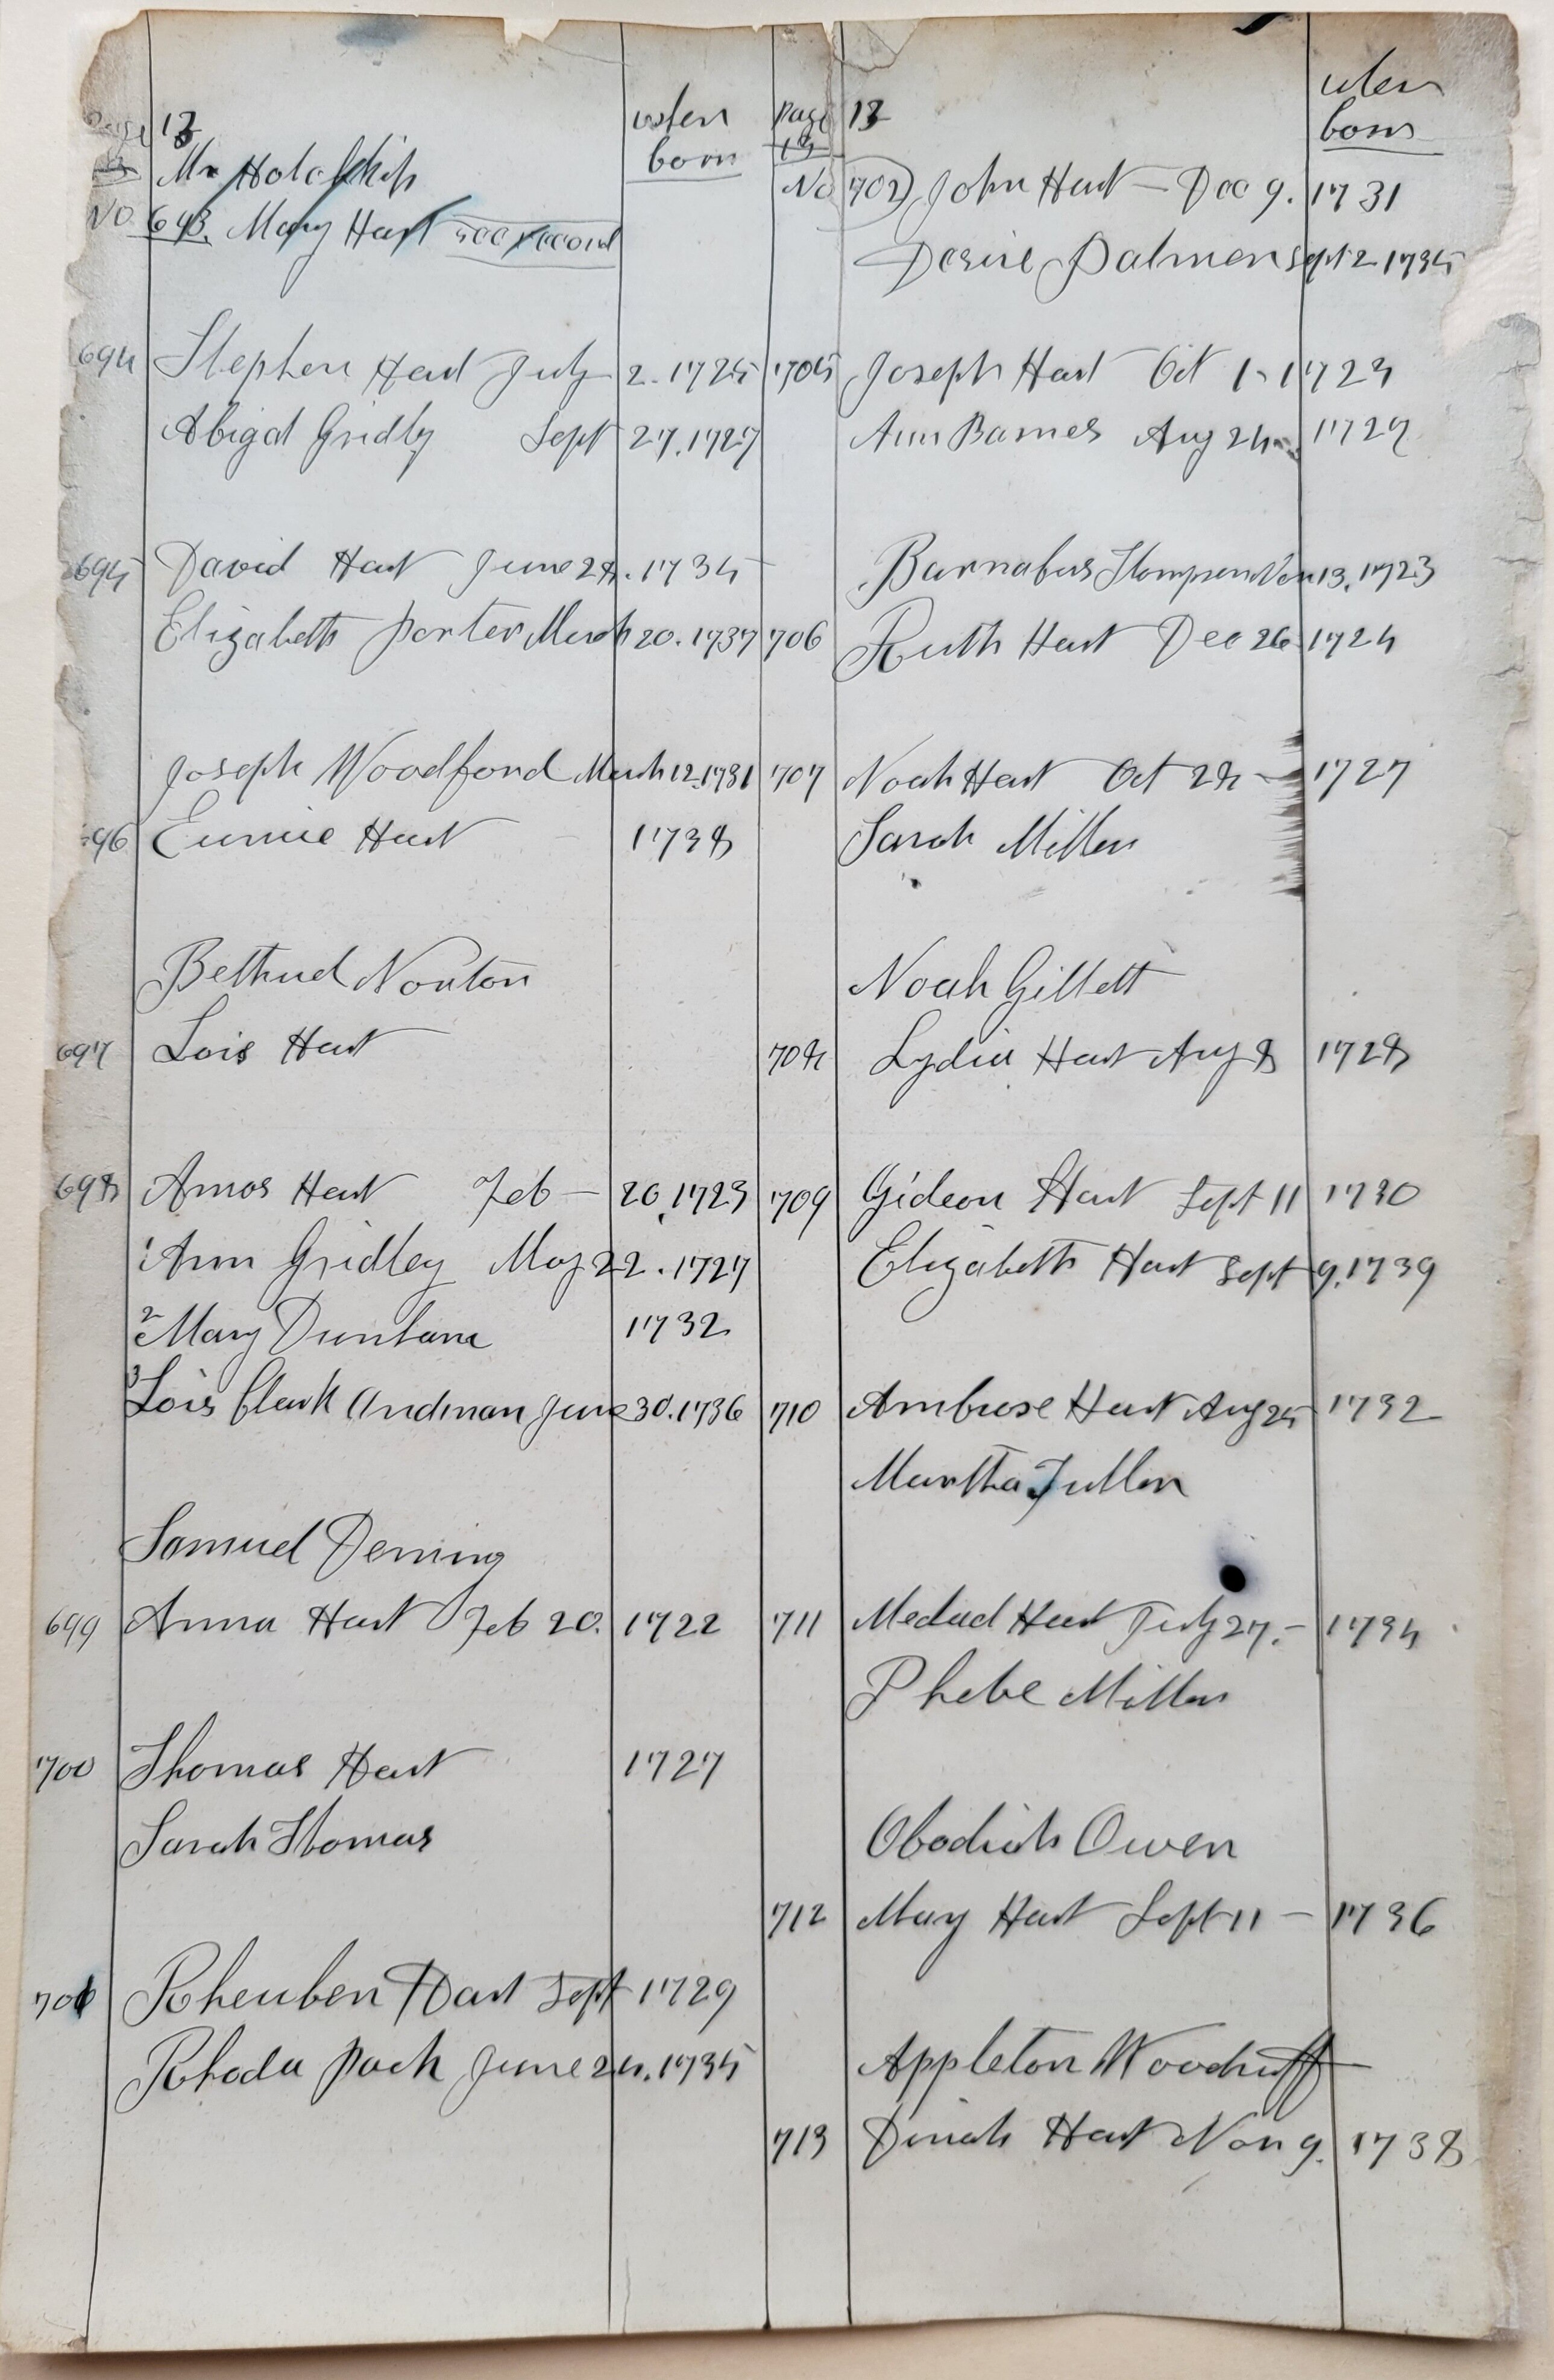 Page 13 when born
Mr Holafkip
No 693. Mary Hart see record
694 Stephen Hart July 2. 1725
Abigal Gridly Sept 27. 1727
695 David Hart June 28. 1735
Elizabeth Porter March 20. 1737
Joseph Woodford March 12. 1731
696 Eunice Hart 1738
Bethuel Norton
697 Lois Hart
698 Amos Hart Feb — 20, 1723
1 Ann Gridley May 22. 1727
2 Mary Dunham 1732
3 Lois Clark June 30. 1736
Samuel Deming
699 Anna Hart Feb 20. 1722
700 Thomas Hart 1727
Sarah Thomas
701 Rheuben Hart Sept 1729
Rhoda Peck June 24. 1735
Page 13 13 when born
No 702 John Hart — Dec 9. 1731
Desire Palmer Sept 2 1735
705 Joseph Hart Oct 1 - 1723
Ann Barnes Aug 24 - 1729
Barnabus Thompson Nov 13. 1723
706 Ruth Hart Dec 26 1724
707 Noah Hart Oct 28 — 1727
Sarah Miller
Noah Gillett
708 Lydia Hart Aug 8 1728
709 Gideon Hart Sept 11 1730
Elizabeth Hart Sept 9. 1739
710 Ambrose Hart Aug 25 1732
Martha Fuller
711 Medad Hart July 27. — 1734
Phebe Miller
Obadiah Owen
712 Mary Hart Sept 11 — 1736
Appleton Woodruff
713 Dinah Hart Nov 9. 1738